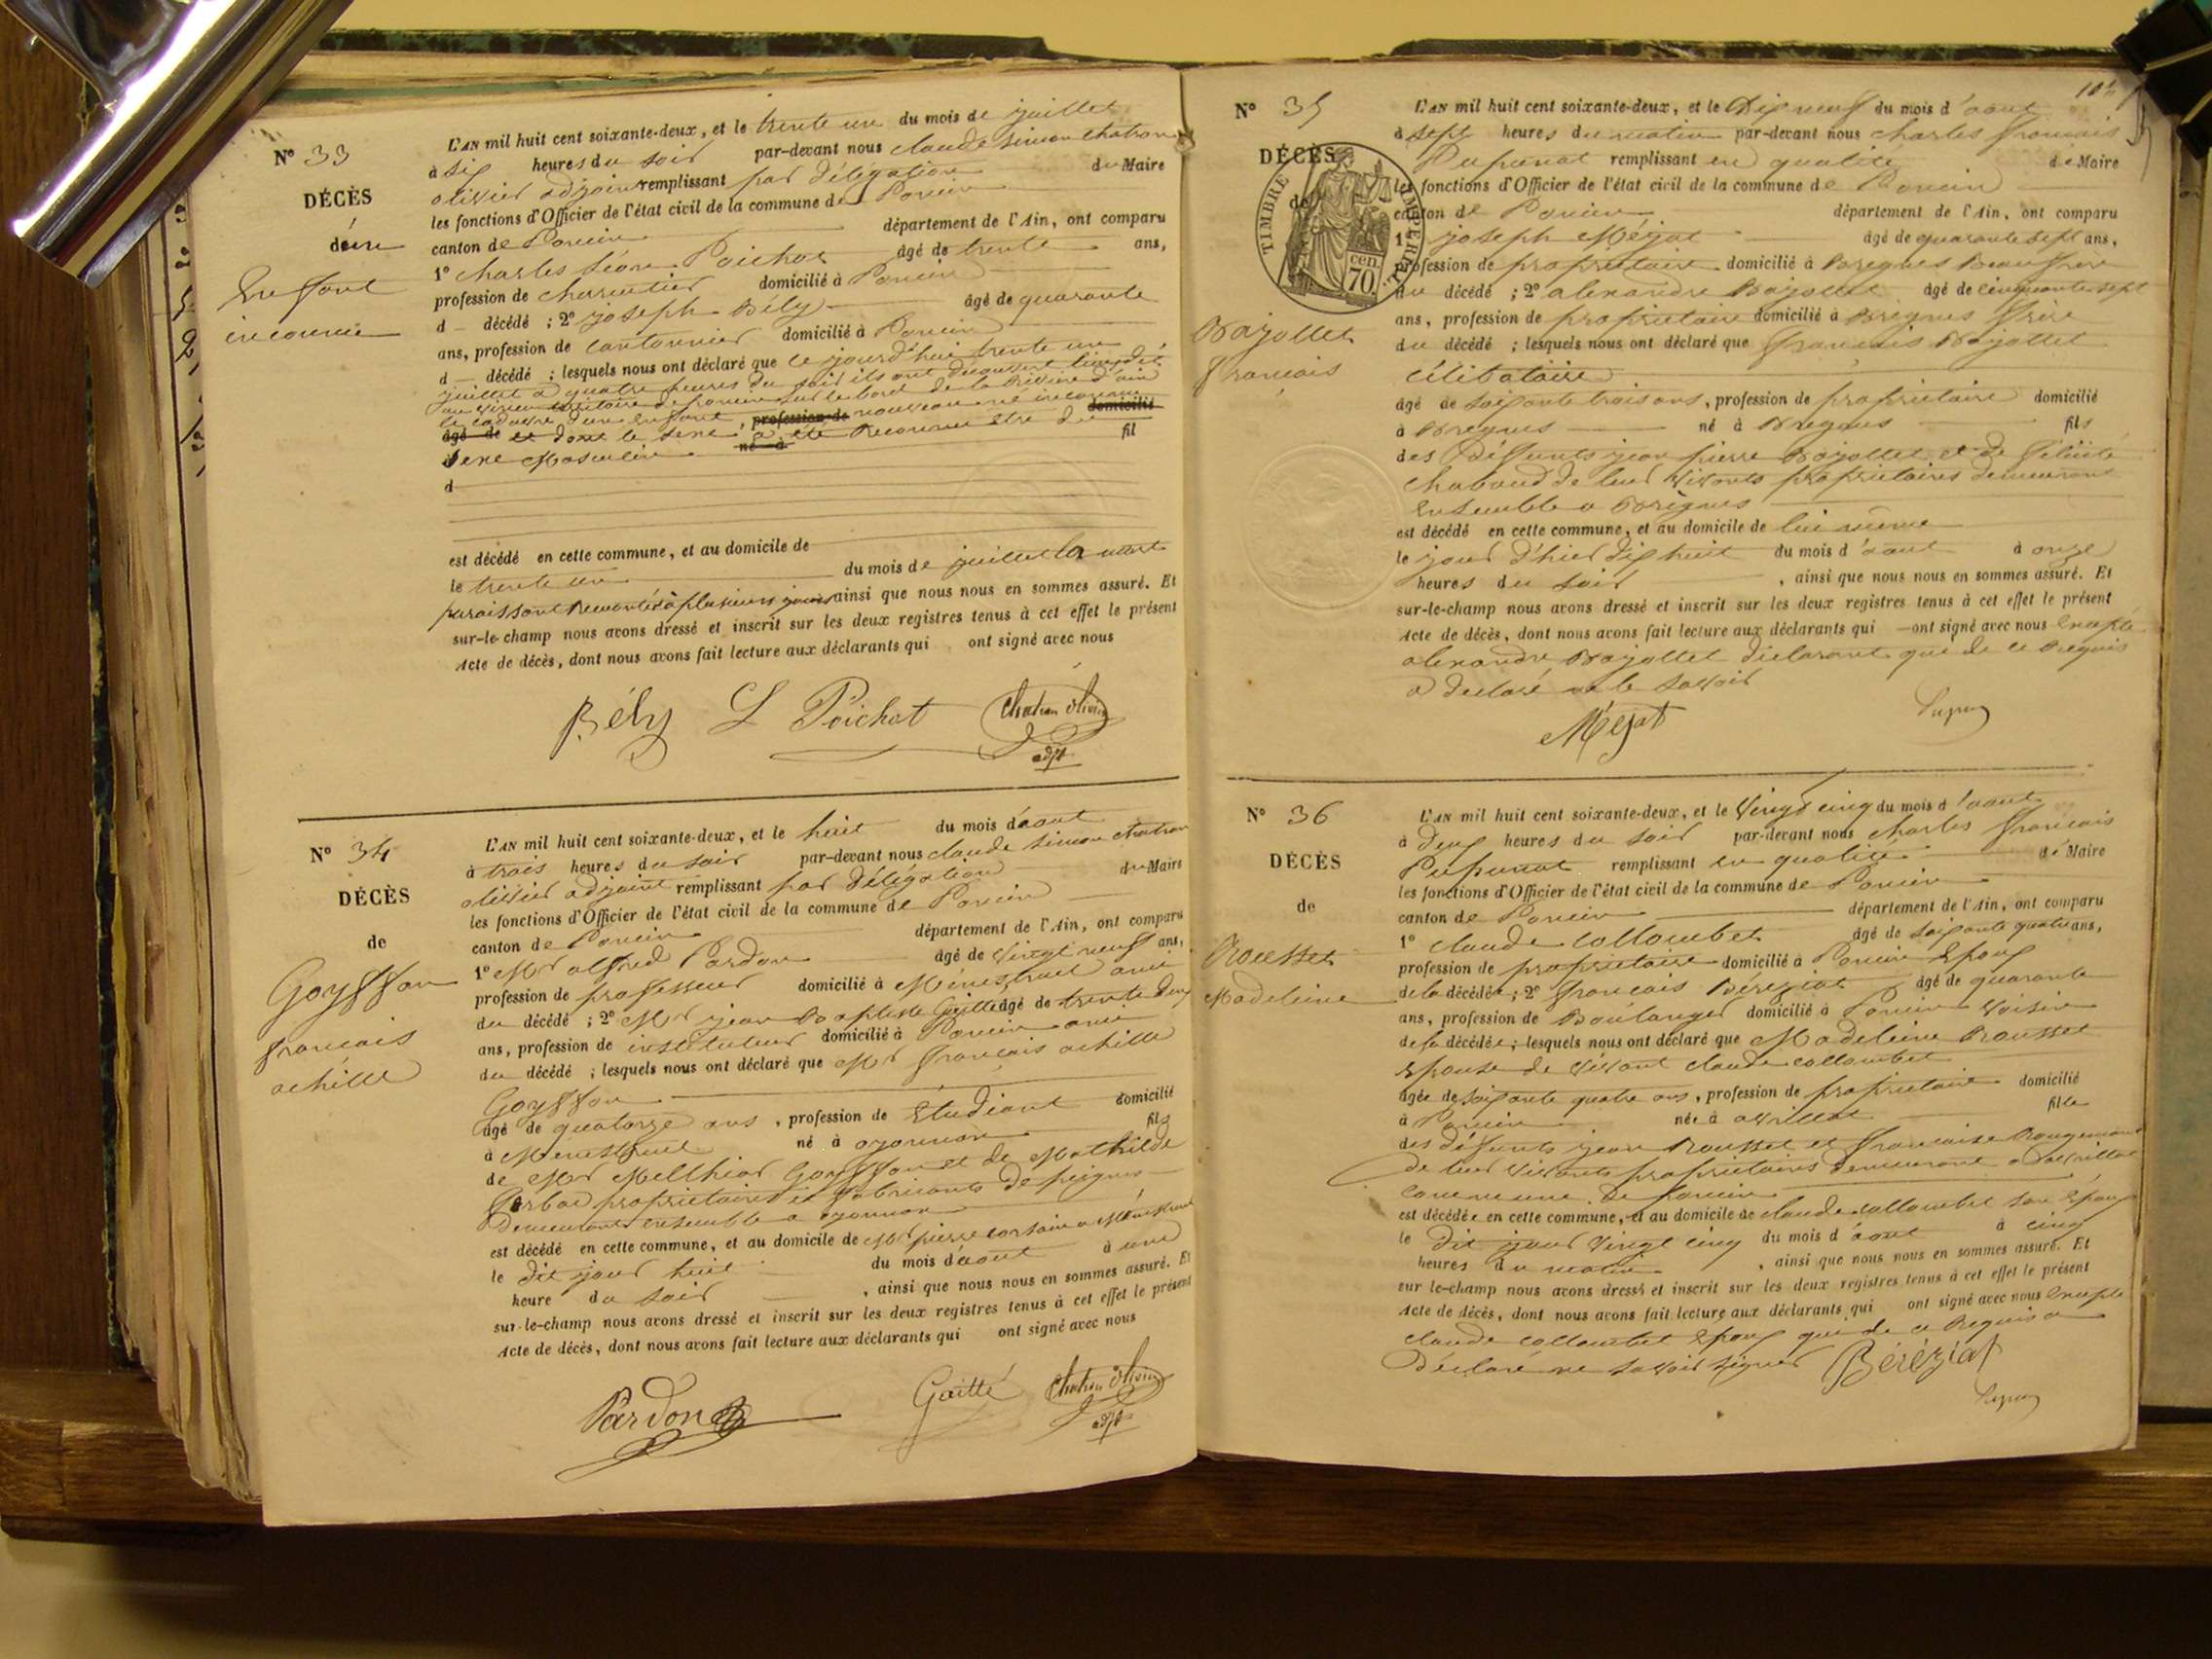 N° 33
DÉCÈS
d'un
Enfant
inconnu
L'AN mil huit cent soixante-deux, et le trente un du mois de juillet
à six heures du soir par-devant nous claude simon chatron
olivier adjoint remplissant par délégation du Maire
les fonctions d'Officier de l'état civil de la commune de Poncin
canton de Poncin département de l'Ain, ont comparu
1° Charles Léon Poichot âgé de trente ans,
profession de charcutier domicilié à Poncin
d décédé ; 2° joseph Bély âgé de quarante
ans, profession de cantonnier domicilié à Poncin
d décédé ; lesquels nous ont déclaré que ce jourd'hui trente un
juillet à quatre heures du soir ils ont découvert
territoire de poncin sur le bord de la rivière d'ain
le cadavre d'un enfant, profession de nouveau né inconnu domicilié
âgé de et dont le sexe a été reconnu être du
sexe Masculin né à fil
d
est décédé en cette commune, et au domicile de
le trente un du mois de juillet la mort
paraissant remonter à plusieurs jours ainsi que nous nous en sommes assuré. Et
sur-le-champ nous avons dressé et inscrit sur les deux registres tenus à cet effet le présent
Acte de décès, dont nous avons fait lecture aux déclarants qui ont signé avec nous
Bély L Poichot Chatron Olivier
adjt
N° 34
DÉCÈS
de
Goyffon
francois
achille
L'AN mil huit cent soixante-deux, et le huit du mois d'aout
à trois heures du soir par-devant nous claude simon chatron
olivier adjoint remplissant par délégation du Maire
les fonctions d'Officier de l'état civil de la commune de Poncin
canton de Poncin département de l'Ain, ont comparu
1° Mr alfred Pardon âgé de vingt neuf ans,
profession de professeur domicilié à Ménestruel ami
du décédé ; 2° Mr jean Baptiste Gaitte âgé de trente deux
ans, profession de instituteur domicilié à Poncin ami
du décédé ; lesquels nous ont déclaré que Mr francois achille
Goyffon
âgé de quatorze ans, profession de Etudiant domicilié
à Menestruel né à oyonnax fils
de Mr Melchior Goyffon et de Mathilde
propriétaires et fabricants de peignes
Demeurant ensemble a oyonnax
est décédé en cette commune, et au domicile de Mr pierre a Ménestruel
le dit jour huit du mois d'aout à une
heure du soir, ainsi que nous nous en sommes assuré. Et
sur-le-champ nous avons dressé et inscrit sur les deux registres tenus à cet effet le présent
Acte de décès, dont nous avons fait lecture aux déclarants qui ont signé avec nous
Pardon Gaitte Chatron Olivier
adjt
N° 35
DÉCÈS
de
TIMBRE IMPÉRIAL
70 cen.
Bajollet
francois
L'AN mil huit cent soixante-deux, et le Dix neuf du mois d'aout
à sept heures du matin par-devant nous charles francois
Pupunat remplissant en qualité de Maire
les fonctions d'Officier de l'état civil de la commune de Poncin
canton de Poncin département de l'Ain, ont comparu
1° joseph Méjat âgé de quarante sept ans,
profession de propriétaire domicilié à Breignes Beau frère
du décédé ; 2° alexandre Bajollet âgé de cinquante sept
ans, profession de propriétaire domicilié à Breignes frère
du décédé ; lesquels nous ont déclaré que francois Bajollet
célibataire
âgé de soixante trois ans, profession de propriétaire domicilié
à Breignes né à Breignes fils
des Défunts jean pierre Bajollet et de Félicité
Chaboud de leur vivants propriétaires demeurant
ensemble a Breignes
est décédé en cette commune, et au domicile de lui même
le jour d'hier dix huit du mois d'aout à onze
heures du soir, ainsi que nous nous en sommes assuré. Et
sur-le-champ nous avons dressé et inscrit sur les deux registres tenus à cet effet le présent
Acte de décès, dont nous avons fait lecture aux déclarants qui ont signé avec nous Excepté
alexandre Bajollet déclarant qui de ce requis
a déclaré ne le savoir
Méjat
N° 36
DÉCÈS
de
Rousset
Madeleine
L'AN mil huit cent soixante-deux, et le vingt cinq du mois d'aout
à deux heures du soir par-devant nous charles francois
Pupunat remplissant en qualité de Maire
les fonctions d'Officier de l'état civil de la commune de Poncin
canton de Poncin département de l'Ain, ont comparu
1° claude Collombet âgé de soixante quatre ans,
profession de propriétaire domicilié à Poncin Epoux
de la décédée ; 2° francois Béréziat âgé de quarante
ans, profession de Boulanger domicilié à Poncin voisin
de la décédée ; lesquels nous ont déclaré que Madeleine Rousset
Epouse de vivant claude collombet
âgée de soixante quatre ans, profession de propriétaire domicilié
à Poncin née à avrillat fille
des défunts jean Rousset et francoise Rougemont
de leur vivants propriétaires demeurant a avrillat
commune de poncin
est décédée en cette commune, et au domicile de claude collombet son Epoux
le dit jour vingt cinq du mois d'aout à cinq
heures du matin, ainsi que nous nous en sommes assuré. Et
sur le-champ nous avons dressé et inscrit sur les deux registres tenus à cet effet le présent
Acte de décès, dont nous avons fait lecture aux déclarants qui ont signé avec nous Excepté
claude collombet Epoux qui de ce Requis a
Déclaré ne savoir signer Béréziat